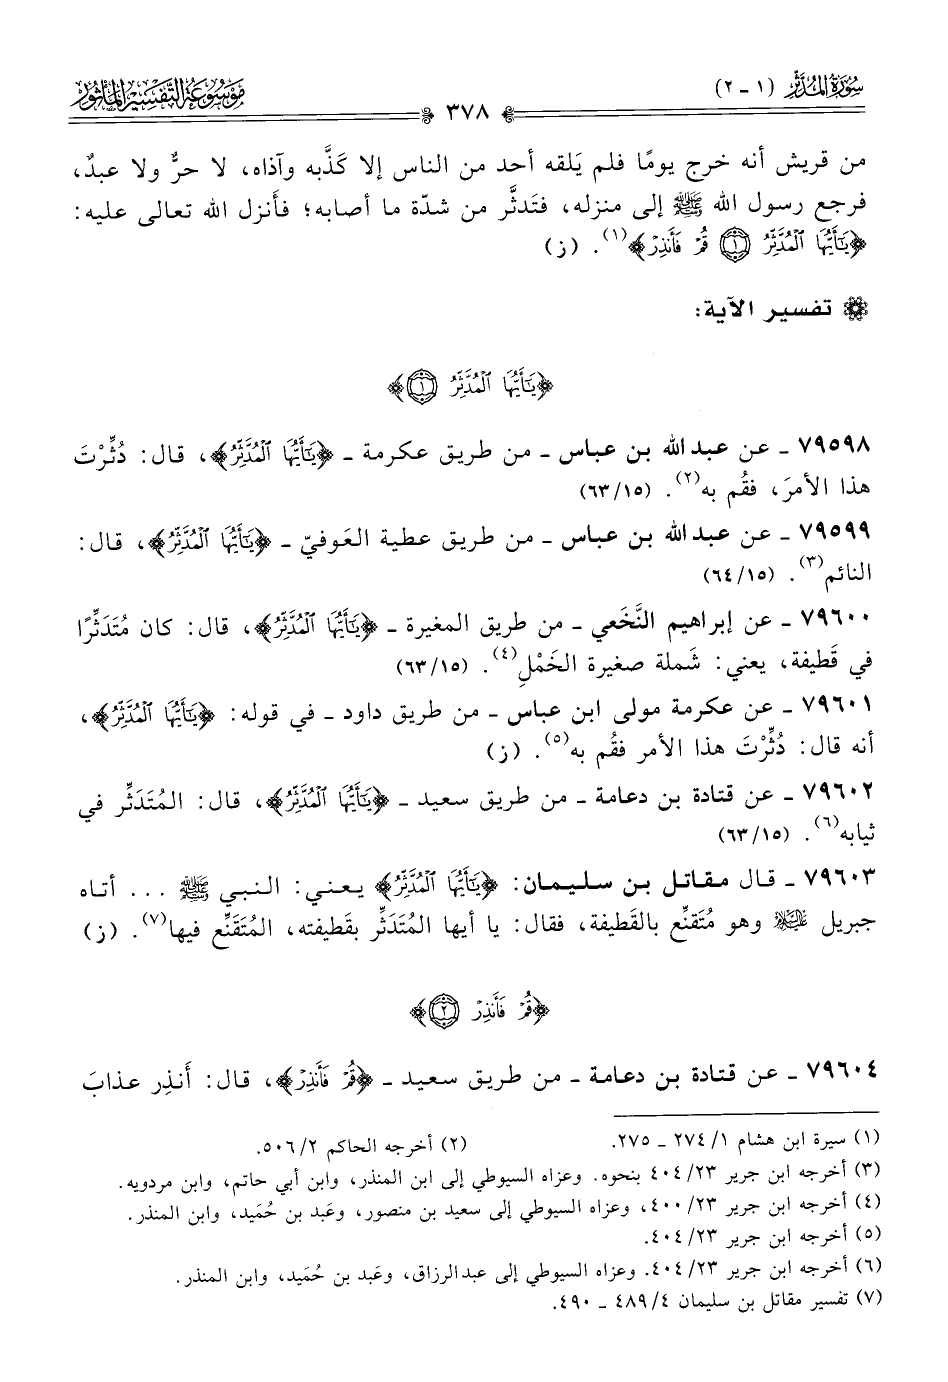 سُورَةُ المُدَّثِّر (١ - ٢)
٣٧٨
مَوْسُوعَة التَّفْسِير المَأْثُور
من قريش أنه خرج يومًا فلم يَلقه أحد من الناس إلا كَذَّبه وآذاه، لا حرٌّ ولا عبدٌ،
فرجع رسول الله ﷺ إلى منزله، فتَدثَّر من شدّة ما أصابه؛ فأَنزل الله تعالى عليه:
﴿يَٰٓأَيُّهَا ٱلْمُدَّثِّرُ ١ قُمْ فَأَنذِرْ﴾(١). (ز)
تفسير الآية:
﴿يَٰٓأَيُّهَا ٱلْمُدَّثِّرُ ١﴾
٧٩٥٩٨ - عن عبد الله بن عباس - من طريق عكرمة - ﴿يَٰٓأَيُّهَا ٱلْمُدَّثِّرُ﴾، قال: دُثِّرْتَ
هذا الأمرَ، فقُم به(٢). (٦٣/١٥)
٧٩٥٩٩ - عن عبد الله بن عباس - من طريق عطية العَوفيّ - ﴿يَٰٓأَيُّهَا ٱلْمُدَّثِّرُ﴾، قال:
النائم(٣). (٦٤/١٥)
٧٩٦٠٠ - عن إبراهيم النَّخَعي - من طريق المغيرة - ﴿يَٰٓأَيُّهَا ٱلْمُدَّثِّرُ﴾، قال: كان مُتَدَثِّرًا
في قَطيفة، يعني: شَملة صغيرة الخَمْلِ(٤). (٦٣/١٥)
٧٩٦٠١ - عن عكرمة مولى ابن عباس - من طريق داود - في قوله: ﴿يَٰٓأَيُّهَا ٱلْمُدَّثِّرُ﴾،
أنه قال: دُثِّرْتَ هذا الأمر فقُم به(٥). (ز)
٧٩٦٠٢ - عن قتادة بن دعامة - من طريق سعيد - ﴿يَٰٓأَيُّهَا ٱلْمُدَّثِّرُ﴾، قال: المُتَدَثِّر في
ثيابه(٦). (٦٣/١٥)
٧٩٦٠٣ - قال مقاتل بن سليمان: ﴿يَٰٓأَيُّهَا ٱلْمُدَّثِّرُ﴾ يعني: النبي ﷺ ... أتاه
جبريل عليه السلام وهو مُتَقنِّع بالقَطيفة، فقال: يا أيها المُتَدَثِّر بقَطيفته، المُتَقنِّع فيها(٧). (ز)
﴿قُمْ فَأَنذِرْ ٢﴾
٧٩٦٠٤ - عن قتادة بن دعامة - من طريق سعيد - ﴿قُمْ فَأَنذِرْ﴾، قال: أَنذِر عذابَ
(١) سيرة ابن هشام ٢٧٤/١ - ٢٧٥. (٢) أخرجه الحاكم ٥٠٦/٢.
(٣) أخرجه ابن جرير ٤٠٤/٢٣ بنحوه. وعزاه السيوطي إلى ابن المنذر، وابن أبي حاتم، وابن مردويه.
(٤) أخرجه ابن جرير ٤٠٠/٢٣، وعزاه السيوطي إلى سعيد بن منصور، وعَبد بن حُمَيد، وابن المنذر.
(٥) أخرجه ابن جرير ٤٠٤/٢٣.
(٦) أخرجه ابن جرير ٤٠٤/٢٣. وعزاه السيوطي إلى عبد الرزاق، وعَبد بن حُمَيد، وابن المنذر.
(٧) تفسير مقاتل بن سليمان ٤٨٩/٤ - ٤٩٠.